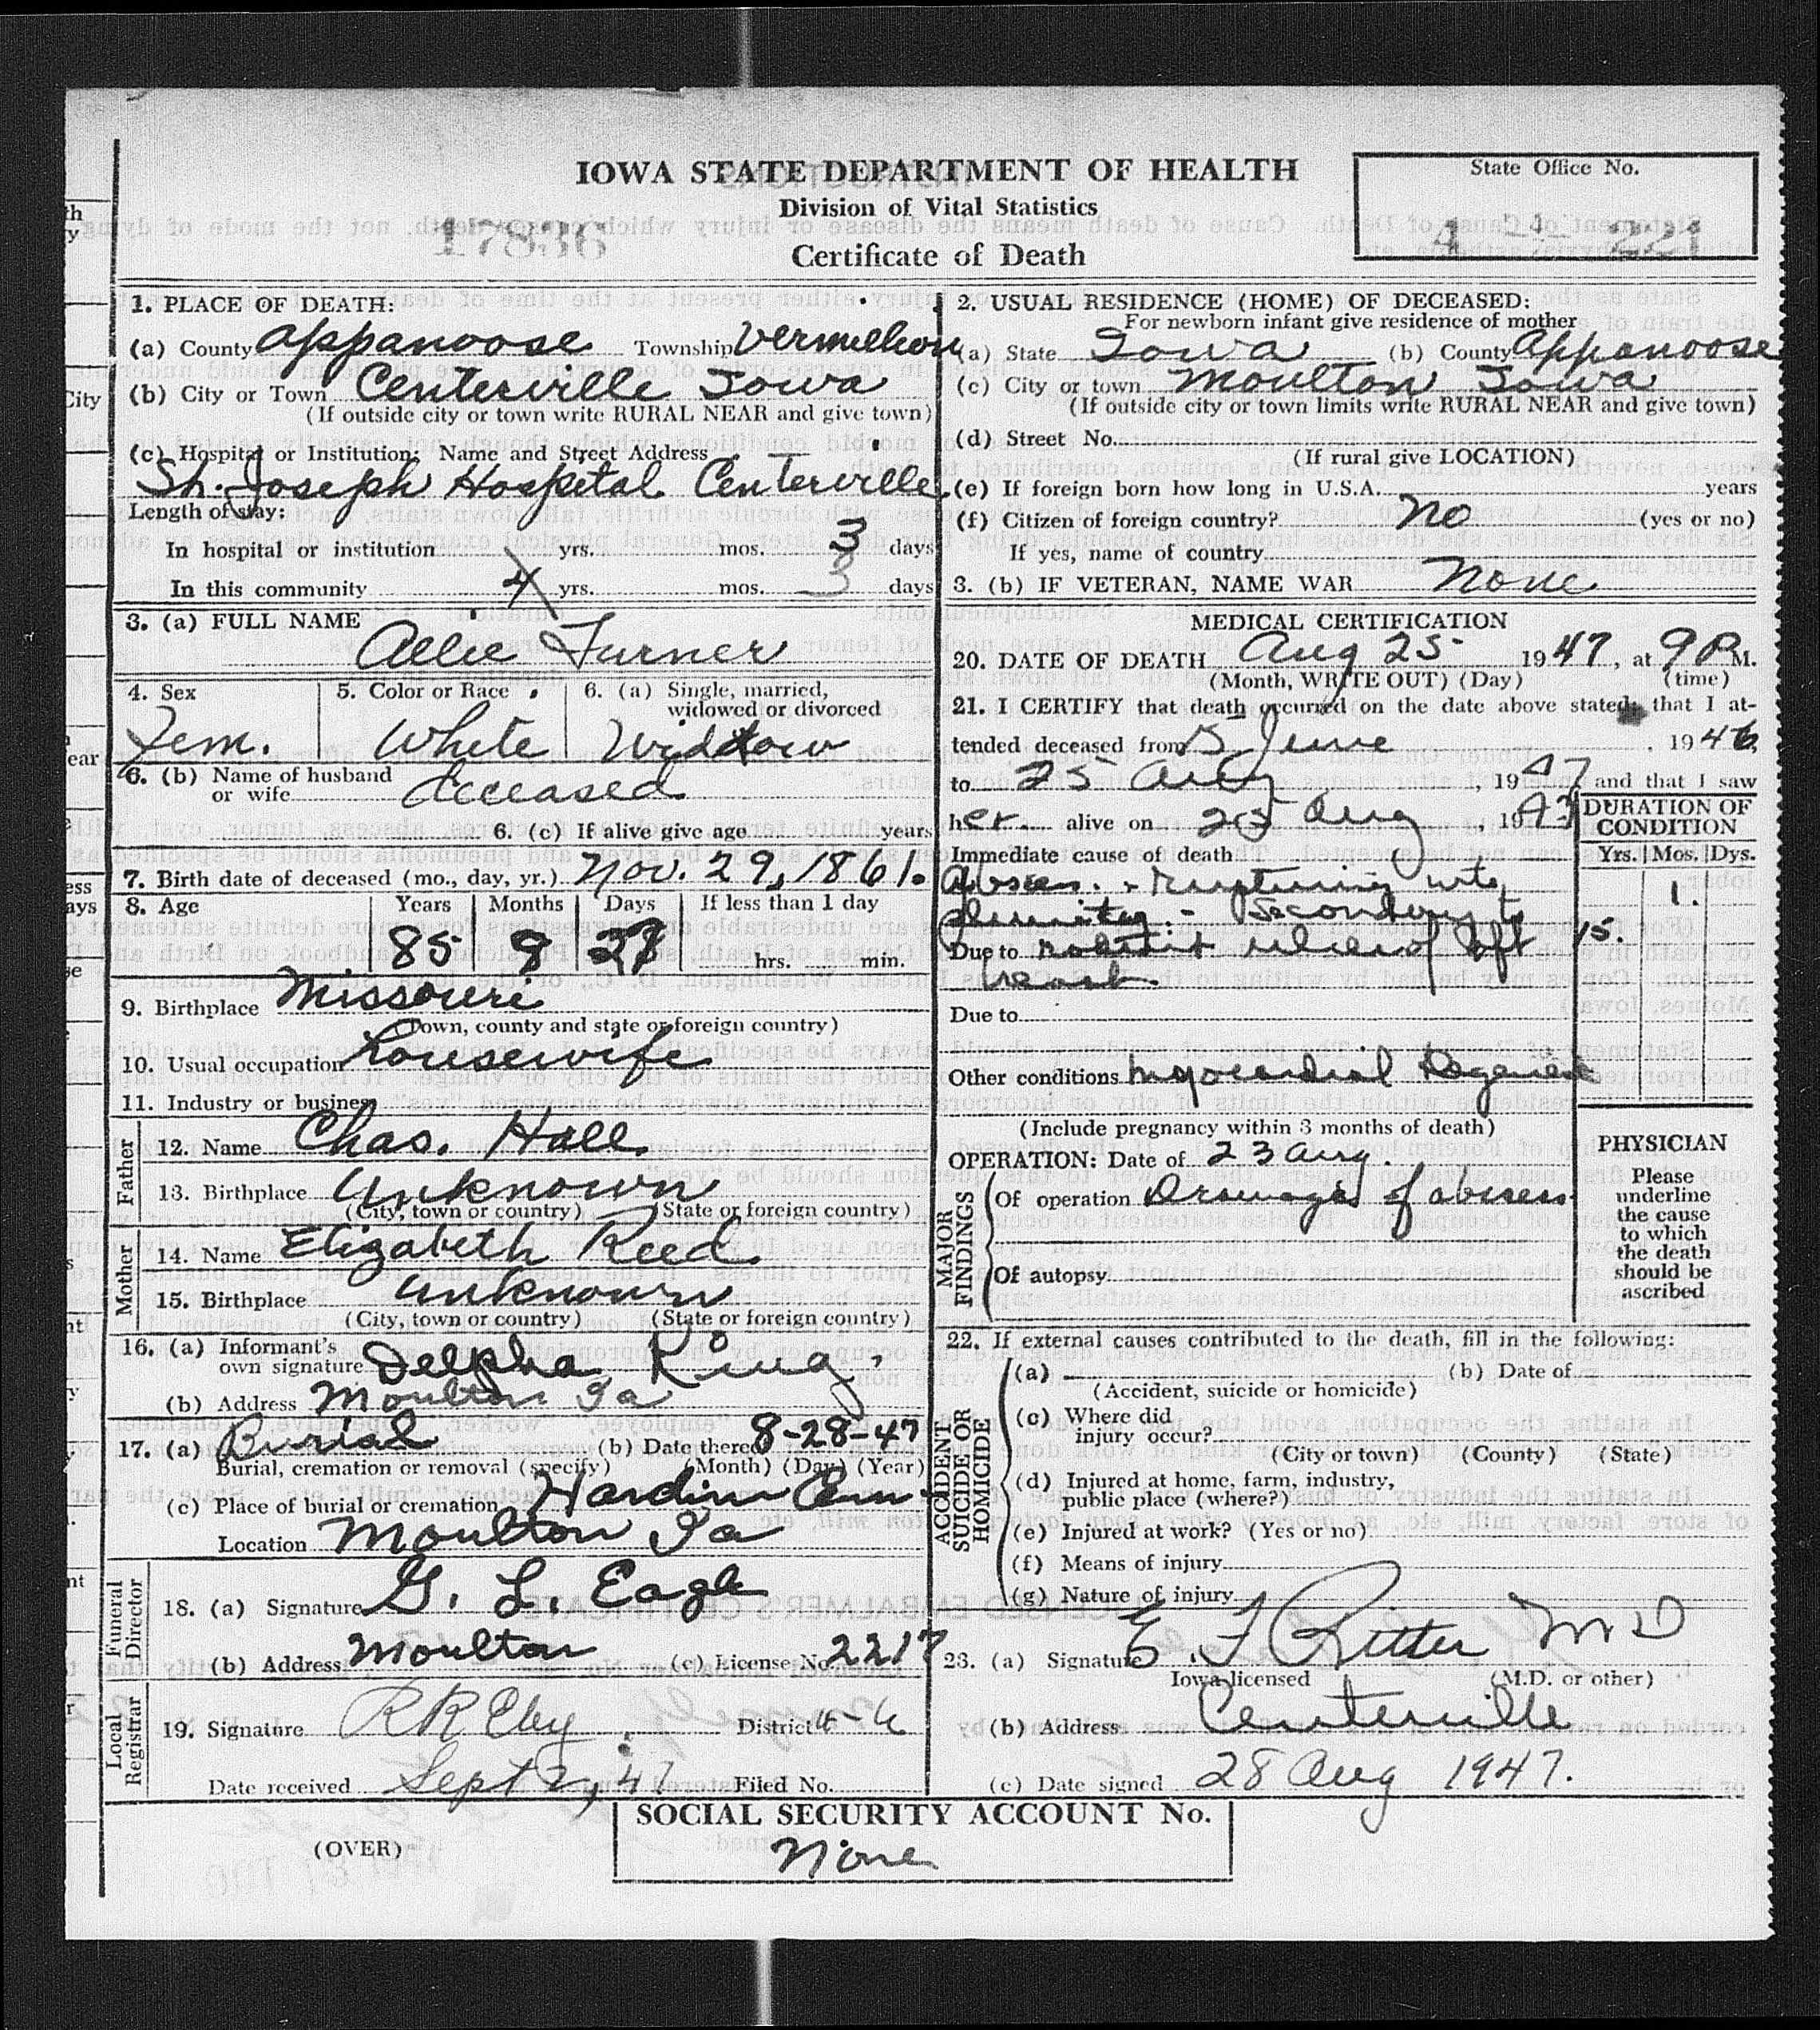 IOWA STATE DEPARTMENT OF HEALTH
Division of Vital Statistics
Certificate of Death
17836
State Office No.
1. PLACE OF DEATH:
(a) County Appanoose Township Vermillion
(b) City or Town Centerville Iowa
(If outside city or town write RURAL NEAR and give town)
(c) Hospital or Institution: Name and Street Address
St. Joseph Hospital Centerville
Length of stay:
In hospital or institution yrs. mos. 3 days
In this community 4 yrs. mos. 3 days
2. USUAL RESIDENCE (HOME) OF DECEASED:
For newborn infant give residence of mother
(a) State Iowa (b) County Appanoose
(c) City or town Moulton Iowa
(If outside city or town limits write RURAL NEAR and give town)
(d) Street No.
(If rural give LOCATION)
(e) If foreign born how long in U.S.A. years
(f) Citizen of foreign country? No (yes or no)
If yes, name of country
3. (b) IF VETERAN, NAME WAR None
3. (a) FULL NAME
Allie Turner
4. Sex 5. Color or Race 6. (a) Single, married,
widowed or divorced
Fem. White Widdow
6. (b) Name of husband
or wife deceased
6. (c) If alive give age years
7. Birth date of deceased (mo., day, yr.) Nov. 29, 1861.
8. Age Years Months Days If less than 1 day
85 9 27 hrs. min.
9. Birthplace Missouri
(Town, county and state or foreign country)
10. Usual occupation housewife
11. Industry or business
Father
12. Name Chas. Hall
13. Birthplace Unknown
(City, town or country) (State or foreign country)
Mother
14. Name Elizabeth Reed
15. Birthplace Unknown
(City, town or country) (State or foreign country)
16. (a) Informant's
own signature Delpha King
(b) Address Moulton Ia
17. (a) Burial (b) Date thereof 8-28-47
Burial, cremation or removal (specify) (Month) (Day) (Year)
(c) Place of burial or cremation Hardin Cem
Location Moulton Ia
Funeral Director
18. (a) Signature G. L. Eagle
(b) Address Moulton (c) License No. 2217
Local Registrar
19. Signature R R Eby District 4-4
Date received Sept 2, 47 Filed No.
MEDICAL CERTIFICATION
20. DATE OF DEATH Aug 25 1947, at 9 P M.
(Month, WRITE OUT) (Day) (time)
21. I CERTIFY that death occurred on the date above stated; that I at-
tended deceased from 15 June, 1946
to 25 Aug, 1947 and that I saw
her alive on 25 Aug, 1947
DURATION OF
CONDITION
Yrs. Mos. Dys.
Immediate cause of death
Abscess rupturing into
1.
Secondary to
Due to left 15.
Due to
Other conditions Myocardial Degenerat
(Include pregnancy within 3 months of death)
MAJOR FINDINGS
OPERATION: Date of 23 Aug.
Of operation Drainage of abscess
Of autopsy
PHYSICIAN
Please
underline
the cause
to which
the death
should be
ascribed
22. If external causes contributed to the death, fill in the following:
ACCIDENT SUICIDE OR HOMICIDE
(a) (b) Date of
(Accident, suicide or homicide)
(c) Where did
injury occur?
(City or town) (County) (State)
(d) Injured at home, farm, industry,
public place (where?)
(e) Injured at work? (Yes or no)
(f) Means of injury
(g) Nature of injury
23. (a) Signature E. F Ritter M D
Iowa licensed (M.D. or other)
(b) Address Centerville
(c) Date signed 28 Aug 1947.
(OVER)
SOCIAL SECURITY ACCOUNT No.
None